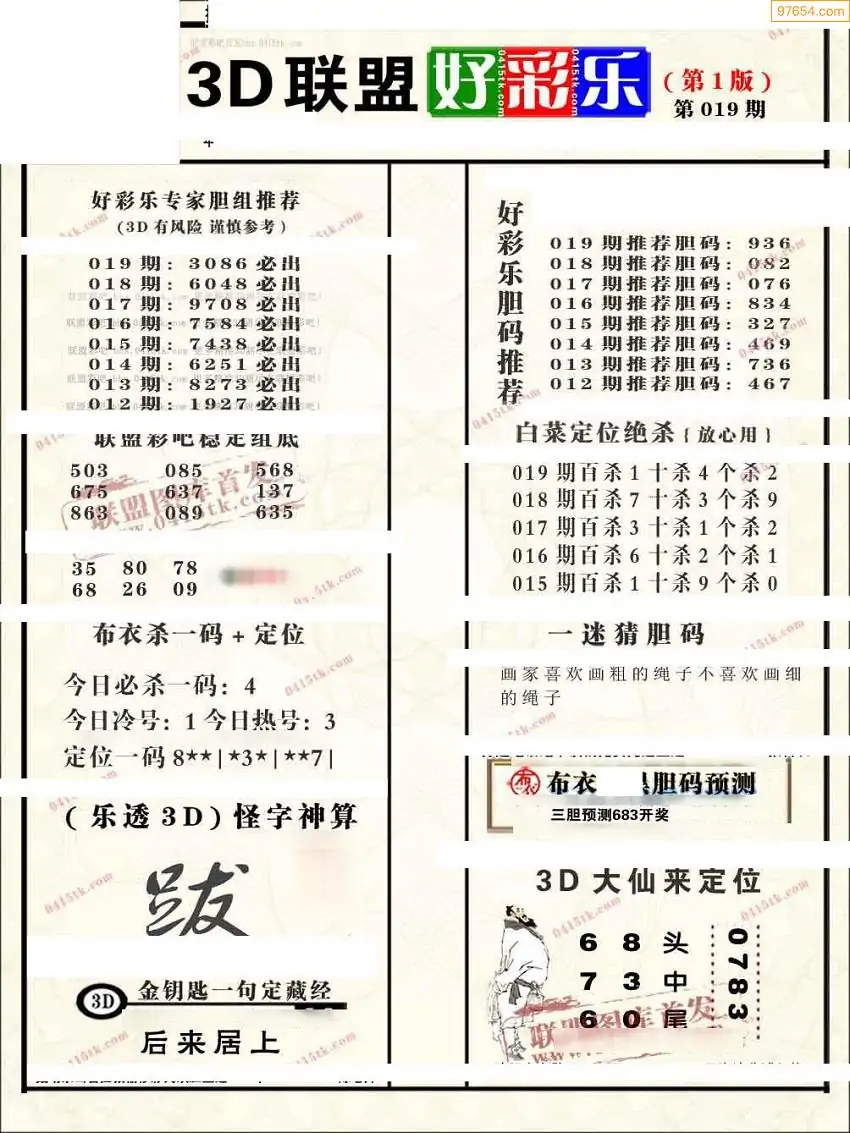 97654.com
3D联盟好彩乐
0415tk.com
0415tk.com
(第1版)
第019期
好彩乐专家胆组推荐
(3D有风险 谨慎参考)
019期: 3086必出
018期: 6048必出
017期: 9708必出
016期: 7584必出
015期: 7438必出
014期: 6251必出
013期: 8273必出
012期: 1927必出
联盟彩吧稳定组底
503 085 568
675 637 137
863 089 635
联盟图库首发
www.0415tk.com
35 80 78
68 26 09
布衣杀一码+定位
今日必杀一码: 4
今日冷号: 1 今日热号: 3
定位一码 8**|*3*|**7|
(乐透3D)怪字神算
跋
3D 金钥匙一句定藏经
后来居上
好彩乐胆码推荐
019期推荐胆码: 936
018期推荐胆码: 082
017期推荐胆码: 076
016期推荐胆码: 834
015期推荐胆码: 327
014期推荐胆码: 469
013期推荐胆码: 736
012期推荐胆码: 467
白菜定位绝杀{放心用}
019期百杀1十杀4个杀2
018期百杀7十杀3个杀9
017期百杀3十杀1个杀2
016期百杀6十杀2个杀1
015期百杀1十杀9个杀0
一迷猜胆码
画家喜欢画粗的绳子不喜欢画细
的绳子
布衣 胆码预测
三胆预测683开奖
3D大仙来定位
6 8 头
7 3 中
6 0 尾
0783
联盟图库首发